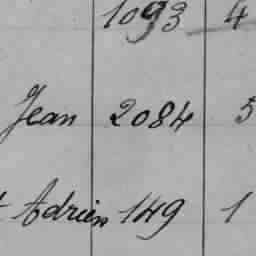 1093 4
Jean 2084 5
t Adrien 149 1